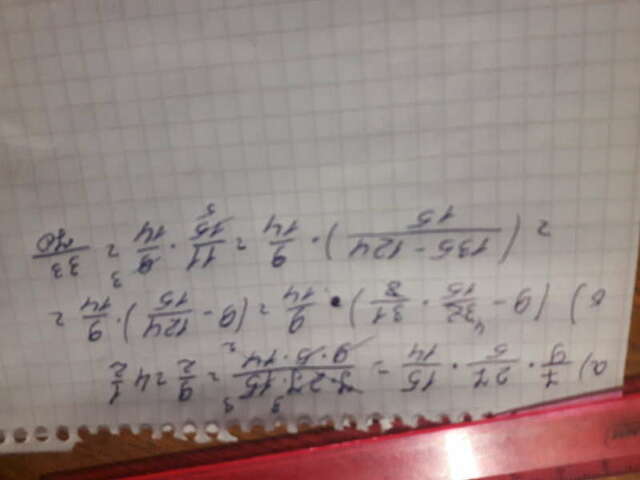 а) 7/9 · 27/5 · 15/14 = 7·27³·15³/9·5·14₂ = 9/2 = 4 1/2
б) (9 - ⁴32/15 · 31/8) · 9/14 = (9 - 124/15) · 9/14 =
= (135-124/15) · 9/14 = 11/15₅ · 9³/14 = 33/70